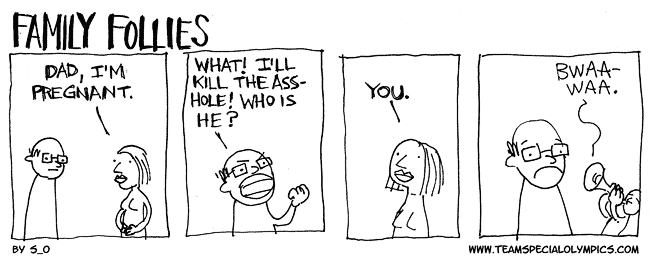 FAMILY FOLLIES
DAD, I'M
PREGNANT.
WHAT! I'LL
KILL THE ASS-
HOLE! WHO IS
HE?
YOU.
BWAA-
WAA.
BY S_O
WWW.TEAMSPECIALOLYMPICS.COM